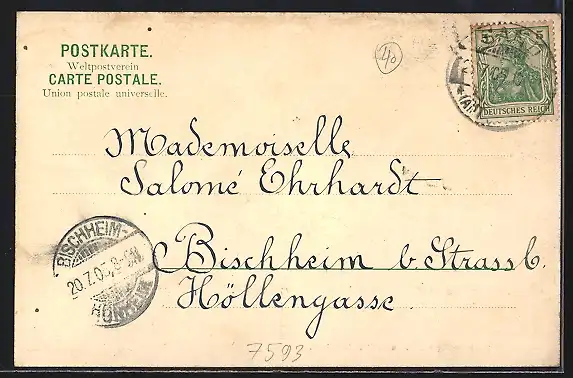 POSTKARTE.
Weltpostverein
CARTE POSTALE.
Union postale universelle.
5 5
DEUTSCHES REICH
Mademoiselle
Salomé Ehrhardt
Bischheim b. Strassb.
Höllengasse
BISCHHEIM-
20.7.05.
HÖNHEIM
7593